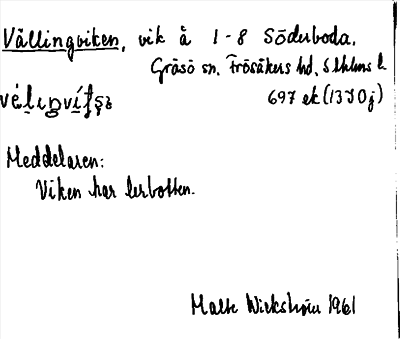 Vällingviken, vik å 1-8 Söderboda,
Gräsö sn, Frösåkers hd, Sthlms l.
697 ek (13I0j)
Meddelaren:
Viken har lerbotten.
Malte Wickström 1961